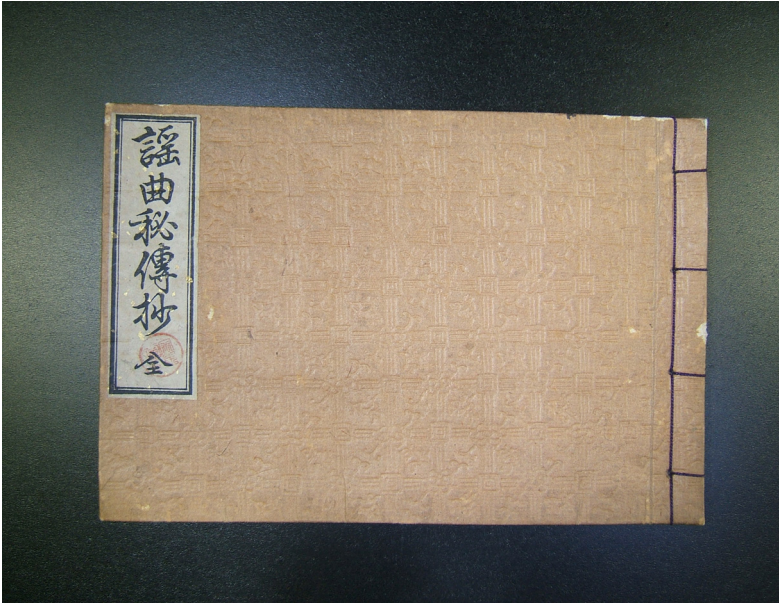 謡曲秘傳抄 全